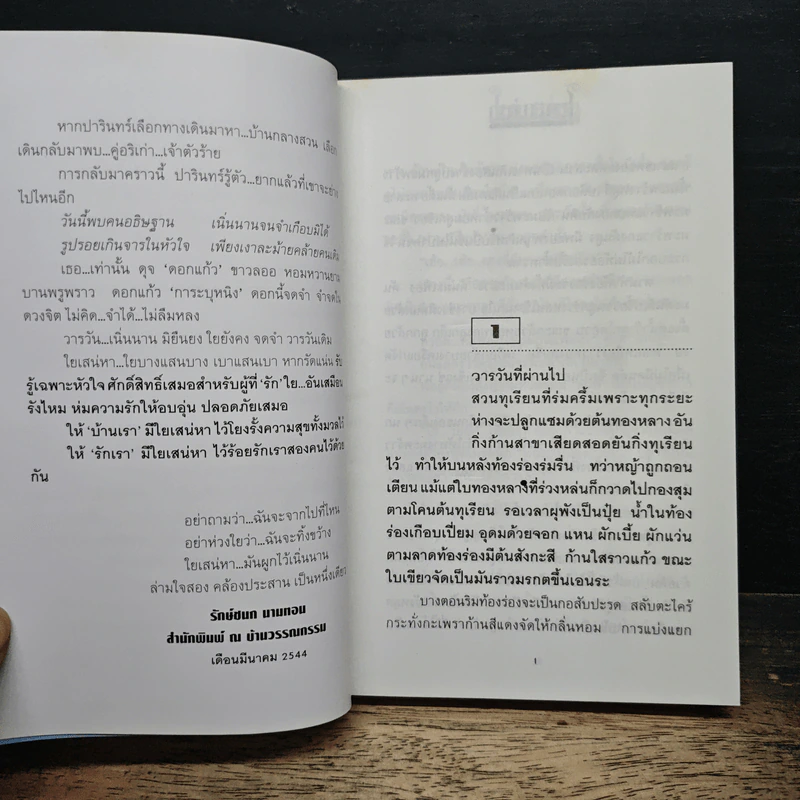 หากปารินทร์เลือกทางเดินมาหา...บ้านกลางสวน เลือก
เดินกลับมาพบ...คู่อริเก่า...เจ้าตัวร้าย
การกลับมาคราวนี้ ปารินทร์รู้ตัว...ยากแล้วที่เขาจะ
ไปไหนอีก
วันนี้พบคนอธิษฐาน เนิ่นนานจนจำเกือบมิได้
รูปรอยเกินจารในหัวใจ เพียงเงาละม้ายคล้ายคนเดิม
เธอ...เท่านั้น ดุจ ‘ดอกแก้ว’ ขาวลออ หอมหวานยาม
บานพรูพราว ดอกแก้ว ‘การะบุหนิง’ ดอกนี้จดจำ จำจดใน
ดวงจิต ไม่คิด...จำได้...ไม่ลืมหลง
วารวัน...เนิ่นนาน มิยืนยง ใยยังคง จดจำ วารวันเดิม
ใยเสน่หา...ใยบางแสนบาง เบาแสนเบา หากรัดแน่น รับ
รู้เฉพาะหัวใจ ศักดิ์สิทธิ์เสมอสำหรับผู้ที่ ‘รัก’ ใย...อันเสมือน
รังไหม ห่มความรักให้อบอุ่น ปลอดภัยเสมอ
ให้ ‘บ้านเรา’ มีใยเสน่หา ไว้โยงรั้งความสุขทั้งมวลไว้
ให้ ‘รักเรา’ มีใยเสน่หา ไว้ร้อยรักเราสองคนไว้ด้วย
กัน
อย่าถามว่า...ฉันจะจากไปที่ไหน
อย่าห่วงใยว่า...ฉันจะทิ้งขว้าง
ใยเสน่หา...มันผูกไว้เนิ่นนาน
ล่ามใจสอง คล้องประสาน เป็นหนึ่งเดียว
รักษ์ชนก นามทอน
สำนักพิมพ์ ณ บ้านวรรณกรรม
เดือนมีนาคม 2544
1
วารวันที่ผ่านไป
สวนทุเรียนที่ร่มครึ้มเพราะทุกระยะ
ห่างจะปลูกแซมด้วยต้นทองหลาง อัน
กิ่งก้านสาขาเสียดสอดยันกิ่งทุเรียน
ไว้ ทำให้บนหลังท้องร่องร่มรื่น ทว่าหญ้าถูกถอน
เตียน แม้แต่ใบทองหลางที่ร่วงหล่นก็กวาดไปกองสุม
ตามโคนต้นทุเรียน รอเวลาผุพังเป็นปุ๋ย น้ำในท้อง
ร่องเกือบเปี่ยม อุดมด้วยจอก แหน ผักเบี้ย ผักแว่น
ตามลาดท้องร่องมีต้นสังกะสี ก้านใสราวแก้ว ขณะ
ใบเขียวจัดเป็นมันราวมรกตขึ้นเอนระ
บางตอนริมท้องร่องจะเป็นกอสับปะรด สลับตะไคร้
กระทั่งกะเพราก้านสีแดงจัดให้กลิ่นหอม การแบ่งแยก
1